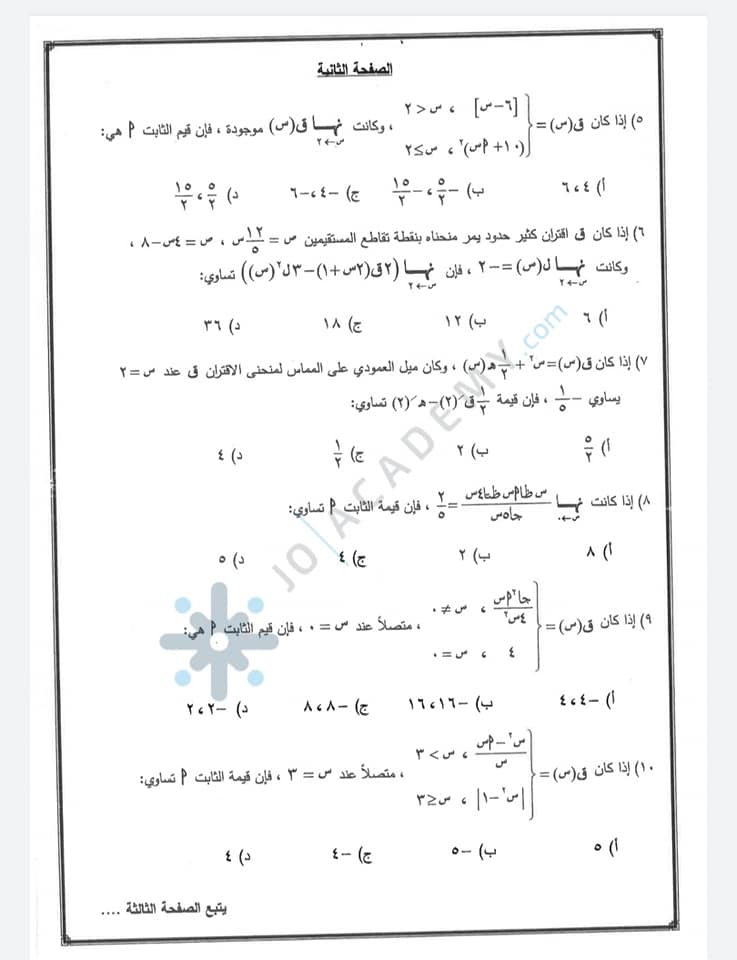 الصفحة الثانية
٥) إذا كان ق(س) = { [٦-س] ، س > ٢
(١٠+ ٢س)٢ ، س ≤ ٢ ، وكانت نهــا س←٢ ق(س) موجودة ، فإن قيم الثابت ٢ هي:
أ) ٤، ٦ ب) -٥/٢، -١٥/٢ ج) -٤، -٦ د) ٥/٢، ١٥/٢
٦) إذا كان ق اقتران كثير حدود يمر منحناه بنقطة تقاطع المستقيمين ص = ١٢/٥ س ، ص = ٤س-٨ ،
وكانت نهــا س←٢ ل(س) = -٢ ، فإن نهــا س←٢ (٢ق(٢س+١)-٣ل٢(س)) تساوي:
أ) ٦ ب) ١٢ ج) ١٨ د) ٣٦
٧) إذا كان ق(س)=س٢+ ١/٢ هـ(س) ، وكان ميل العمودي على المماس لمنحنى الاقتران ق عند س = ٢
يساوي -١/٥ ، فإن قيمة ١/٢ ق´(٢)-هـ´(٢) تساوي:
أ) ٥/٢ ب) ٢ ج) ١/٢ د) ٤
٨) إذا كانت نهــا س←٠ س ظا٢س ظتا٤س / جا٥س = ٢/٥ ، فإن قيمة الثابت ٢ تساوي:
أ) ٨ ب) ٢ ج) ٤ د) ٥
٩) إذا كان ق(س) = { جا٢ ٢س / ٤س٢ ، س ≠ ٠
٤ ، س = ٠ ، متصلاً عند س = ٠ ، فإن قيم الثابت ٢ هي:
أ) -٤، ٤ ب) -١٦، ١٦ ج) -٨، ٨ د) -٢، ٢
١٠) إذا كان ق(س) = { س٢-٢س / س ، س < ٣
|س٢-١| ، س ≥ ٣ ، متصلاً عند س = ٣ ، فإن قيمة الثابت ٢ تساوي:
أ) ٥ ب) -٥ ج) -٤ د) ٤
يتبع الصفحة الثالثة ....
JO ACADEMY.com